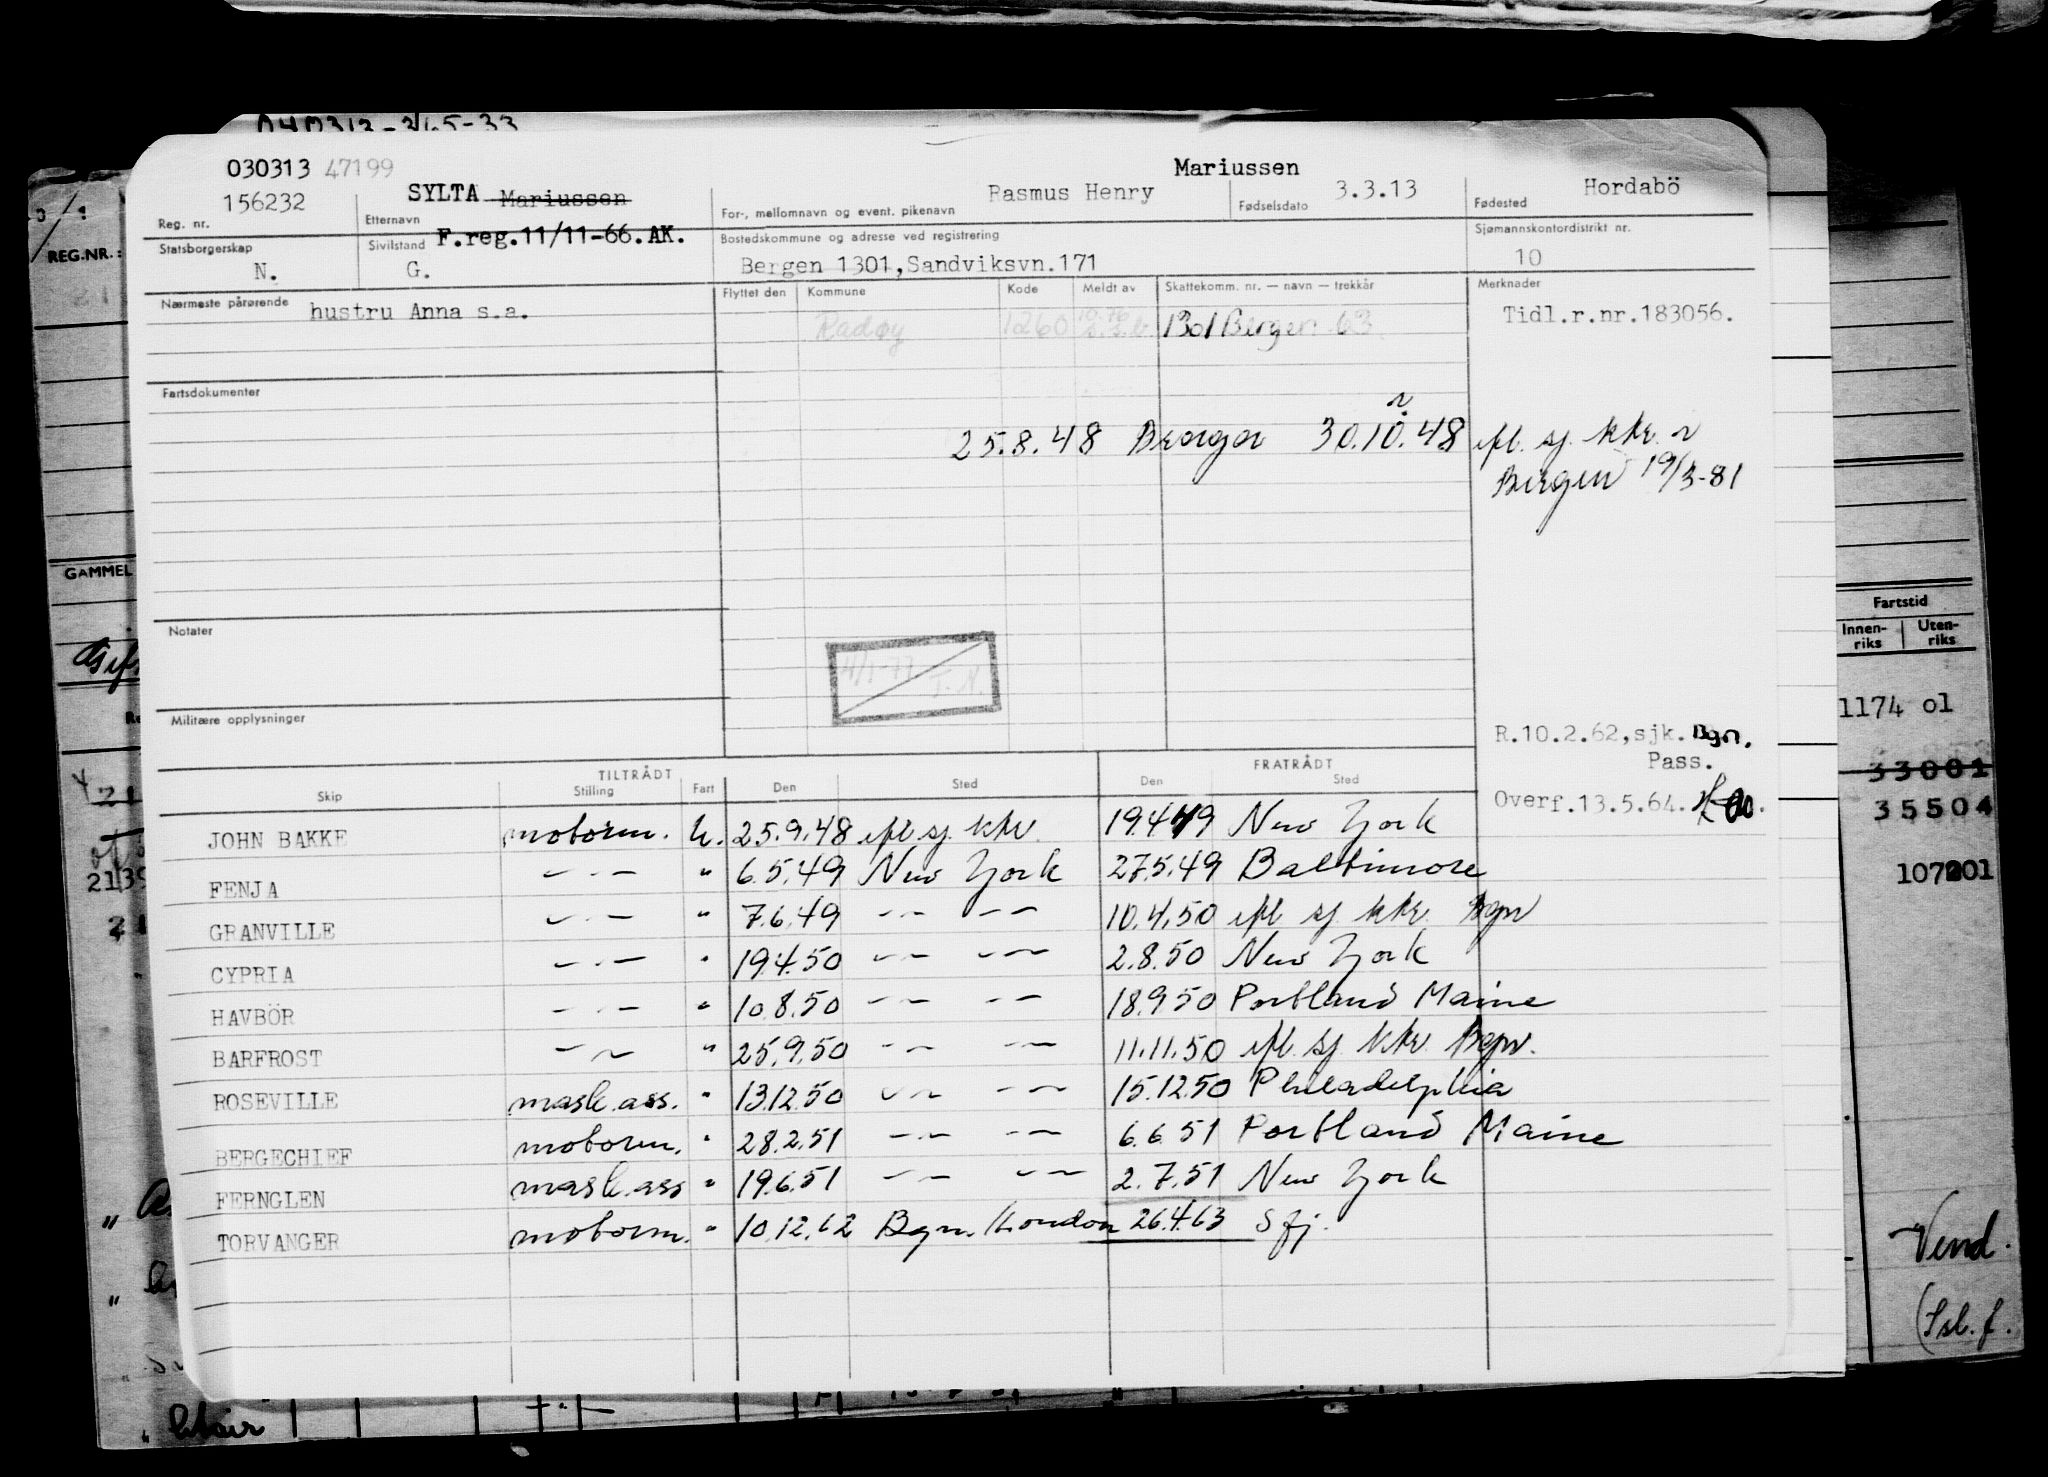 030313 47199
Mariussen
156232 SYLTA Mariussen Rasmus Henry 3.3.13 Hordabö
Reg. nr. Etternavn For-, mellomnavn og event. pikenavn Fødselsdato Fødested
Statsborgerskap Sivilstand F.reg.11/11-66.AK. Bostedskommune og adresse ved registrering Sjømannskontordistrikt nr.
N. G. Bergen 1301,Sandviksvn.171 10
Nærmeste pårørende hustru Anna s.a. Flyttet den Kommune Kode Meldt av Skattekomm. nr. — navn — trekkår Merknader
Radøy 1260 1301 Bergen 63 Tidl.r.nr.183056.
Fartsdokumenter
25.8.48 Bergen 30.10.48 ifl. sj. kkr. n
Bergen 19/3-81
Notater
4/1-77 T.N.
Militære opplysninger
R.10.2.62,sjk. Bgn.
Pass.
Overf.13.5.64.
TILTRÅDT FRATRÅDT
Skip Stilling Fart Den Sted Den Sted
JOHN BAKKE motorm. U. 25.9.48 ifl. sj. kkr. 19.4.49 New York
FENJA — . — " 6.5.49 New York 27.5.49 Baltimore
GRANVILLE — . — " 7.6.49 — — — — 10.4.50 ifl. sj. kkr. Bgn
CYPRIA — . — " 19.4.50 — — — — 2.8.50 New York
HAVBÖR — . — " 10.8.50 — — — — 18.9.50 Portland Maine
BARFROST — — " 25.9.50 — — — — 11.11.50 ifl. sj. kkr. Bgn.
ROSEVILLE mask.ass. " 13.12.50 — — — — 15.12.50 Philadelphia
BERGECHIEF motorm. " 28.2.51 — — — — 6.6.51 Portland Maine
FERNGLEN mask.ass " 19.6.51 — — — — 2.7.51 New York
TORVANGER motorm. " 10.12.62 Bgn./London 26.4.63 Sfj.
REG.NR.:
GAMMEL
Fartstid
Innen-riks Uten-riks
1174 ol
33001
35504
107201
Vend.